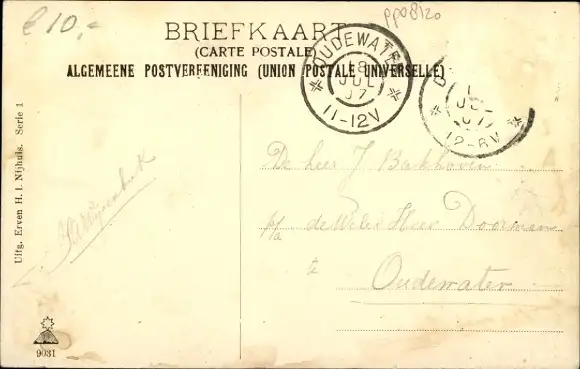 €10,-
pp08120
BRIEFKAART
(CARTE POSTALE)
ALGEMEENE POSTVEREENIGING (UNION POSTALE UNIVERSELLE)
OUDEWATER
18
JUL
07
11-12V
JUL
07
12-6V
De heer J Bakhoven
p/a de WelEd Heer Doorman
te
Oudewater
Uitg. Erven H. I. Nijhuis. Serie 1
9031